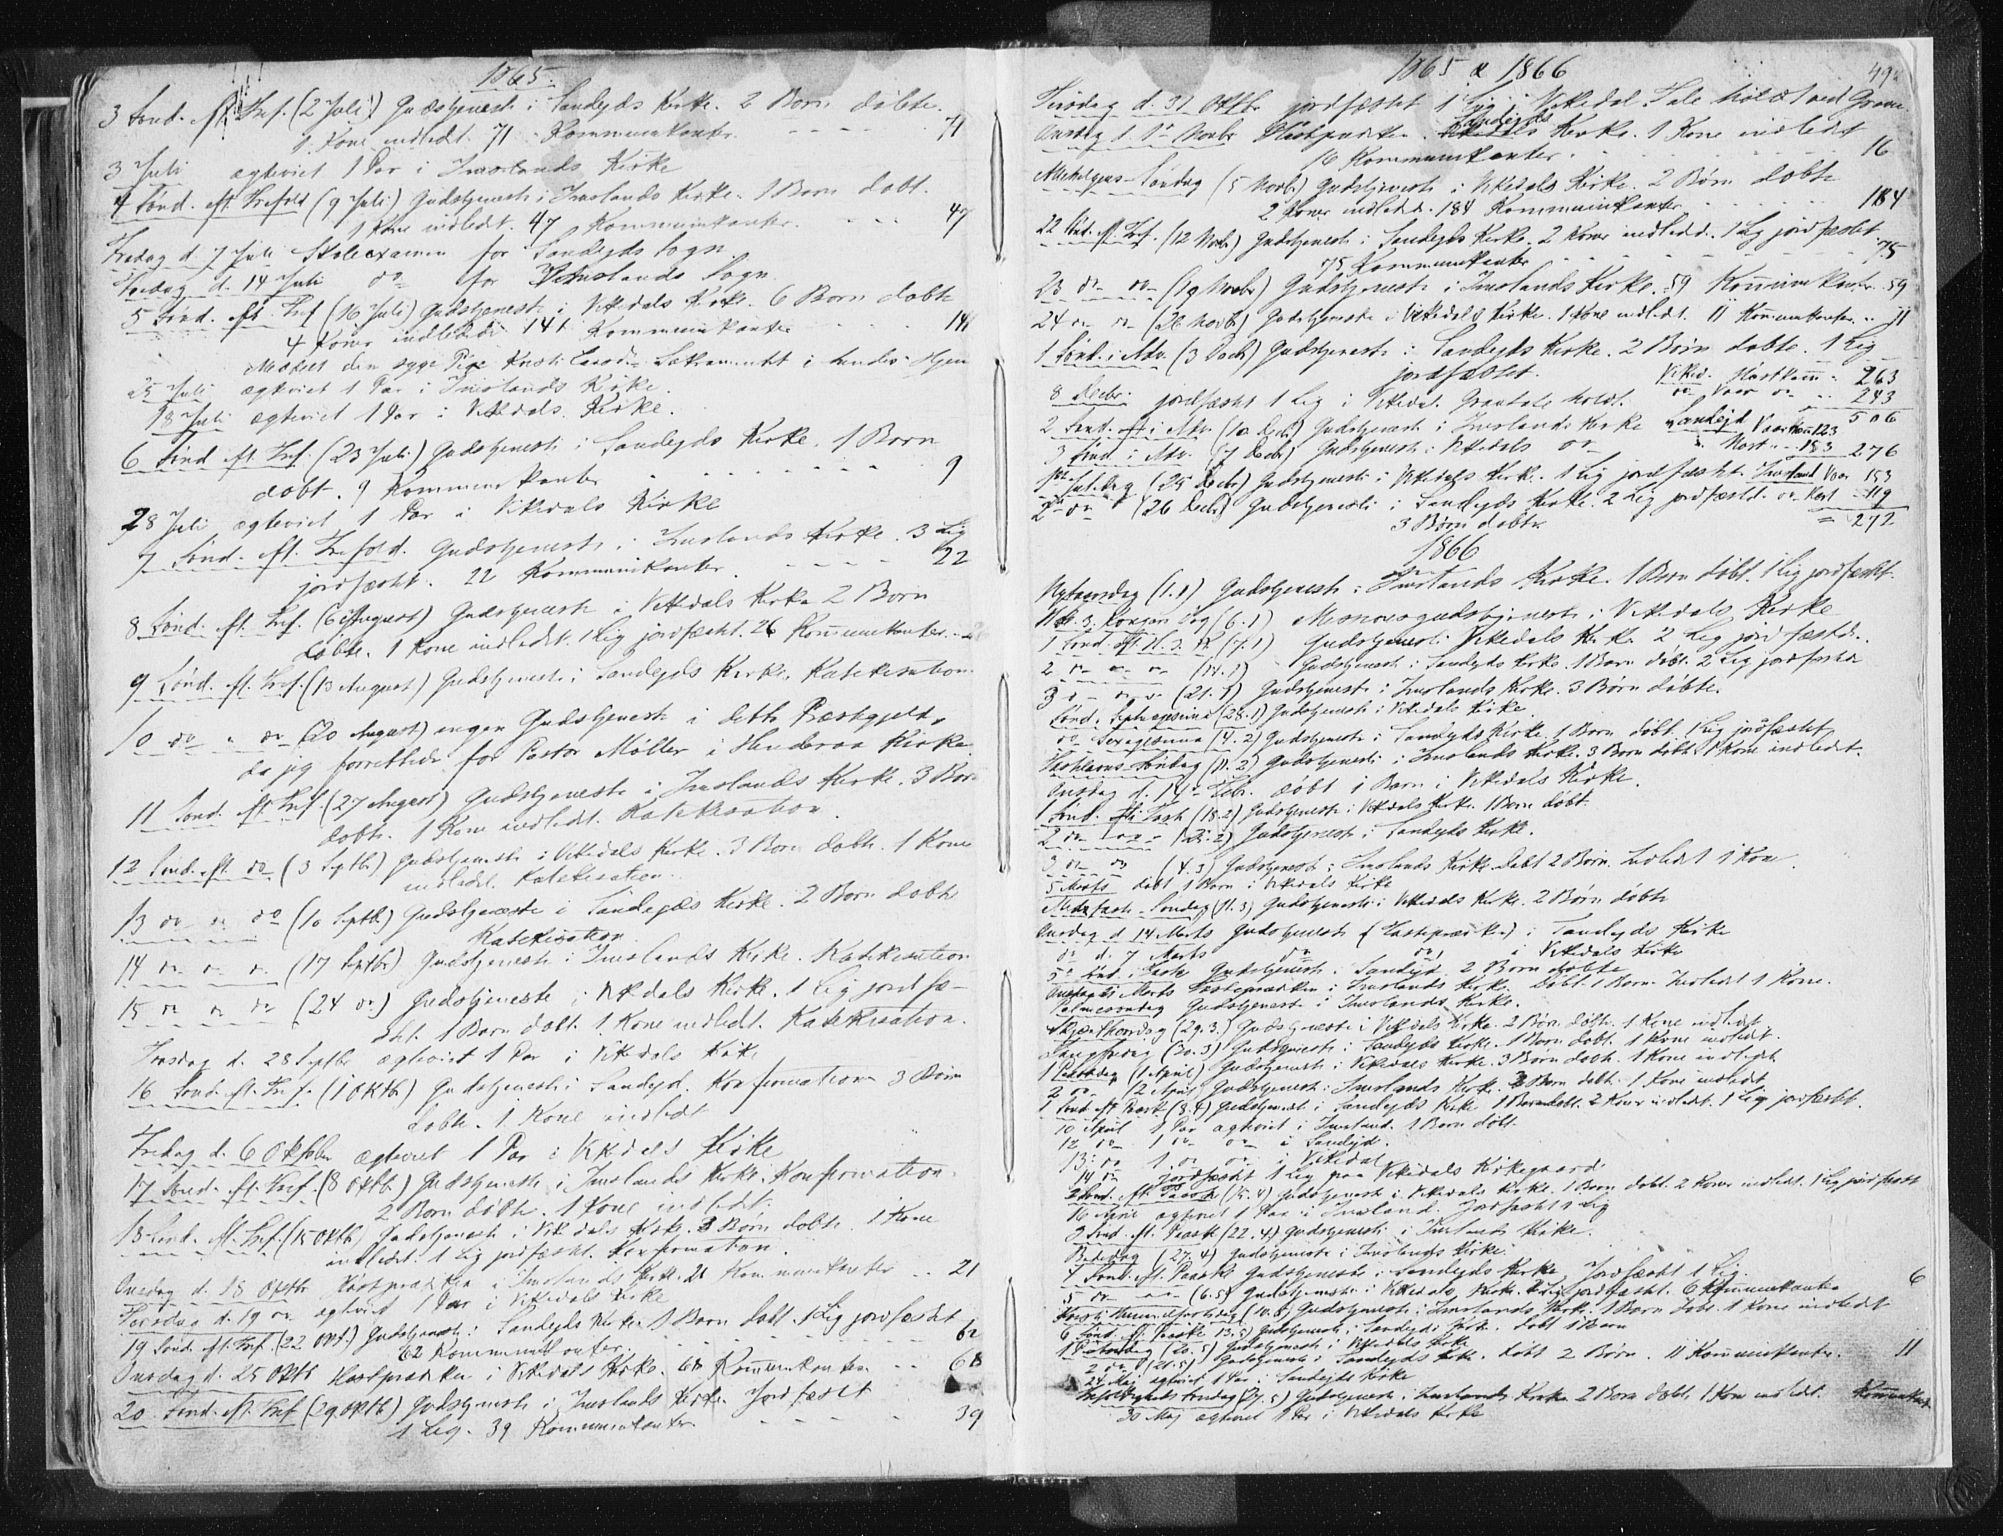 1865.
3 Sønd. eft. Tref. (2 Juli) Gudstjeneste i Sandejds Kirke. 2 Børn døbte.
1 Kone indledt. 71 Kommunikanter. 71
3 Juli ægteviet 1 Par i Imslands Kirke
4 Sønd. eft. Trefold (9 Juli) Gudstjeneste i Imslands Kirke. 1 Barn døbt.
1 Kone indledt. 47 Kommunikanter. 47
Fredag d. 7 Juli Skoleexamen for Sandejds Sogn
Fredag d. 14 Juli do for Imslands Sogn
5 Sønd. eft. Tref (16 Juli) Gudstjeneste i Vikedals Kirke. 6 Børn døbte
4 Koner indledede 141 Kommunikanter 141
Meddelt den syge Pige Sakramentet i hendes Hjem
25 Juli ægteviet 1 Par i Imslands Kirke.
18 Juli ægteviet 1 Par i Vikedals Kirke.
6 Sønd. eft. Tref. (23 Juli) Gudstjeneste i Sandejds Kirke. 1 Barn
døbt. 9 Kommunikanter 9
28 Juli ægteviet 1 Par i Vikedals Kirke
7 Sønd. eft. Trefold. Gudstjeneste i Imslands Kirke. 3 Lig
jordfæstet. 22 Kommunikanter. 22
8 Sønd. eft. Tref. (6 August) Gudstjeneste i Vikedals Kirke 2 Børn
døbte. 1 Kone indledt. 1 Lig jordfæstet. 26 Kommunikanter.
9 Sønd. eft. Tref. (13 August) Gudstjeneste i Sandejds Kirke. Katekisation
10 do " do (20 August) ingen Gudstjeneste i dette Præstegjeld,
da jeg forrettede for Pastor Møller i Kirke
11 Sønd. eft. Tref. (27 August) Gudstjeneste i Imslands Kirke. 3 Børn
døbte. 1 Kone indledt. Katekisation.
12 Sønd. eft. do (3 Septb.) Gudstjeneste i Vikedals Kirke. 3 Børn døbte. 1 Kone
indledt. Katekisation.
13 do " do (10 Septb.) Gudstjeneste i Sandejds Kirke. 2 Børn døbte
Katekisation
14 do do do (17 Septbr) Gudstjeneste i Imslands Kirke. Katekisation
15 do do do (24 do) Gudstjeneste i Vikedals Kirke. 1 Lig jordfæ-
stet. 1 Barn døbt. 1 Kone indledt. Katekisation.
d. 28 Septbr ægteviet 1 Par i Vikedals Kirke
16 Sønd. eft. Tref. (1 Oktb.) Gudstjeneste i Sandejd. Konfirmation 3 Børn
døbte. 1 Kone indledt
Fredag d. 6 Oktbr ægteviet 1 Par i Vikedals Kirke
17 Sønd. eft. Tref. (8 Oktb.) Gudstjeneste i Imslands Kirke. Konfirmation.
2 Børn døbte. 1 Kone indledt.
18 Sønd. eft. Tref. (15 Oktb) Gudstjeneste i Vikedals Kirke. 3 Børn døbte. 1 Kone
indledt. 1 Lig jordfæstet. Konfirmation.
Onsdag d. 18 Oktbr Høstpræken i Imslands Kirke. 21 Kommunikanter .. 21
Torsdag d. 19 do ægteviet 1 Par i Vikedals Kirke
19 Sønd. eft. Tref. (22 Okt.) Gudstjeneste i Sandejds Kirke 1 Barn døbt. 1 Lig jordfæstet
62 Kommunikanter. 62
Onsdag d. 25 Oktb Høstpræken i Vikedals Kirke. 68 Kommunikanter 68
20 Sønd. eft. Tref. (29 Oktb) Gudstjeneste i Imslands Kirke. Jordfæstet
1 Lig. 39 Kommunikanter 39
1865 & 1866
49
Tirsdag d. 31 Oktbr jordfæstet 1 Lig i Vikedal. Tale holdt ved Graven.
Sandejds
Onsdag d. 1 Novbr Høstpræken Kirke. 1 Kone indledt
16 Kommunikanter. 16
Allehelgens-Søndag (5 Novbr.) Gudstjeneste i Vikedals Kirke. 2 Børn døbte
2 Koner indledd. 184 Kommunikanter 184
22 Sønd. eft. Tref. (12 Novb.) Gudstjeneste i Sandejds Kirke. 2 Koner indledd. 1 Lig jordfæstet
75 Kommunikanter 75
23 do do (19 Novbr) Gudstjeneste i Imslands Kirke. 59 Kommunikanter. 59
24 do do (26 Novb) Gudstjeneste i Vikedals Kirke. 1 Kone indledt. 11 Kommunikanter .. 11
1 Sønd. i Adv. (3 Decb) Gudstjeneste i Sandejds Kirke. 2 Børn døbte. 1 Lig
jordfæstet. Viked. Høstkom. 263
8 Decbr. jordfæstet 1 Lig i Vikedal. Gravtale holdt. do Vaar do .. 243
506
2 Sønd. i Adv. (10 Decb) Gudstjeneste i Imslands Kirke Sandejd Vaarkom 123
3 Sønd i Adv. (17 Decb) Gudstjeneste i Vikedals do Høst. 153 276
1ste Juledag (25 Decbr) Gudstjeneste i Vikedals Kirke. 1 Lig jordfæstet. Imsland Vaar 153
2 do (26 Decb) Gudstjeneste i Sandejds Kirke. 2 Lig jordfæstet. do Høst 119
3 Børn døbte = 272
1866
Nytaarsdag (1.1) Gudstjeneste i Imslands Kirke. 1 Barn døbt. 1 Lig jordfæstet.
H. 3 Kongers Dag (6.1) Missionsgudstjeneste i Vikedals Kirke
1 Sønd. eft. H. 3 K (7.1) Gudstjeneste i Vikedals Kirke 2 Lig jordfæstede.
2 do " do (14.1) Gudstjeneste i Sandejds Kirke. 1 Barn døbt. 2 Lig jordfæstede
3 do do (21.1) Gudstjeneste i Imslands Kirke. 3 Børn døbte.
Sønd. Septuagesima (28.1) Gudstjeneste i Vikedals Kirke
do Sexagesima (4.2) Gudstjeneste i Sandejds Kirke. 1 Barn døbt. 1 Lig jordfæstet
Fastelavns Søndag (11.2) Gudstjeneste i Imslands Kirke. 3 Børn døbt. 1 Kone indledt.
Onsdag d. 14 Febr. døbt 1 Barn i Vikedals Kirke.
1 Sønd. i Faste (18.2) Gudstjeneste i Vikedals Kirke. 1 Barn døbt.
2 do (25.2) Gudstjeneste i Sandejds Kirke.
3 do do (4.3) Gudstjeneste i Imslands Kirke døbt 2 Børn. Indledt 1 Kone.
5 Marts døbt 1 Barn i Vikedals Kirke
Midfaste-Søndag (11.3) Gudstjeneste i Vikedals Kirke. 2 Børn døbte
Onsdag d 14 Marts Gudstjeneste (Fastepræken) i Sandejds Kirke
do d. 7 Marts do do i Vikedals Kirke
5 Sønd. i Faste Gudstjeneste i Sandejd 2 Børn døbte
Onsdag 21 Marts Fastepræken i Imslands Kirke. Døbt 1 Barn. Indledt 1 Kone.
Palmesøndag Gudstjeneste i Imslands Kirke.
Skjærthorsdag (29.3.) Gudstjeneste i Vikedals Kirke. 2 Børn døbte. 1 Kone indledt
Langfredag (30.3) Gudstjeneste i Sandejds Kirke. 1 Barn døbt. 1 Kone indledt.
1 Paaskedag (1 April) Gudstjeneste i Vikedals Kirke. 3 Børn døbt. 1 Kone indledt
2 do 2 April Gudstjeneste i Imslands Kirke. 2 Børn døbt. 1 Kone indledt
1 Sønd. eft. Paask (8.4) Gudstjeneste i Sandejds Kirke 1 Barn døbt. 2 Koner indledt. 1 Lig jordfæstet.
10 April Par ægteviet i Imsland. 1 Barn døbt.
12 do 1 do do i Sandejd.
13 do 1 do do i Vikedal
14 do Jordfæstet 1 Lig paa Vikedals Kirkegaard
2 Sønd. eft. Paask (15.4) Gudstjeneste i Vikedals Kirke. 1 Barn døbt. 2 Koner indledt. 1 Lig jordfæstet
16 April ægteviet 1 Par i Imsland. Jordfæstet 1 Lig
3 Sønd. eft. Paask (22.4) Gudstjeneste i Imslands Kirke.
Bededag (27.4) Gudstjeneste i Imslands Kirke.
4 Sønd. eft. Paaske Gudstjeneste i Sandejds Kirke Jordfæstet 1 Lig
5 do do (6.5) Gudstjeneste i Vikedals Kirke. 1 Lig jordfæstet. 6 Kommunikanter 6
Kristi Himmelfartsdag (10.5) Gudstjeneste i Imslands Kirke. 1 Barn døbt. 1 Kone indledt
6 Sønd. eft. Paaske 13.5) Gudstjeneste i Sandejds Kirke. døbt 1 Barn
1 Pintsedag (20.5) Gudstjeneste i Vikedals Kirke
2 do (21.5) Gudstjeneste i Sandejds Kirke. døbt 2 Børn. 11 Kommunikanter. 11
24 Maj ægteviet 1 Par i Sandejds Kirke
Trefoldigheds Søndag (27.5) Gudstjeneste i Imslands Kirke 2 Børn døbt 1 Kone indledt.
30 Maj ægteviet 1 Par i Vikedals Kirke